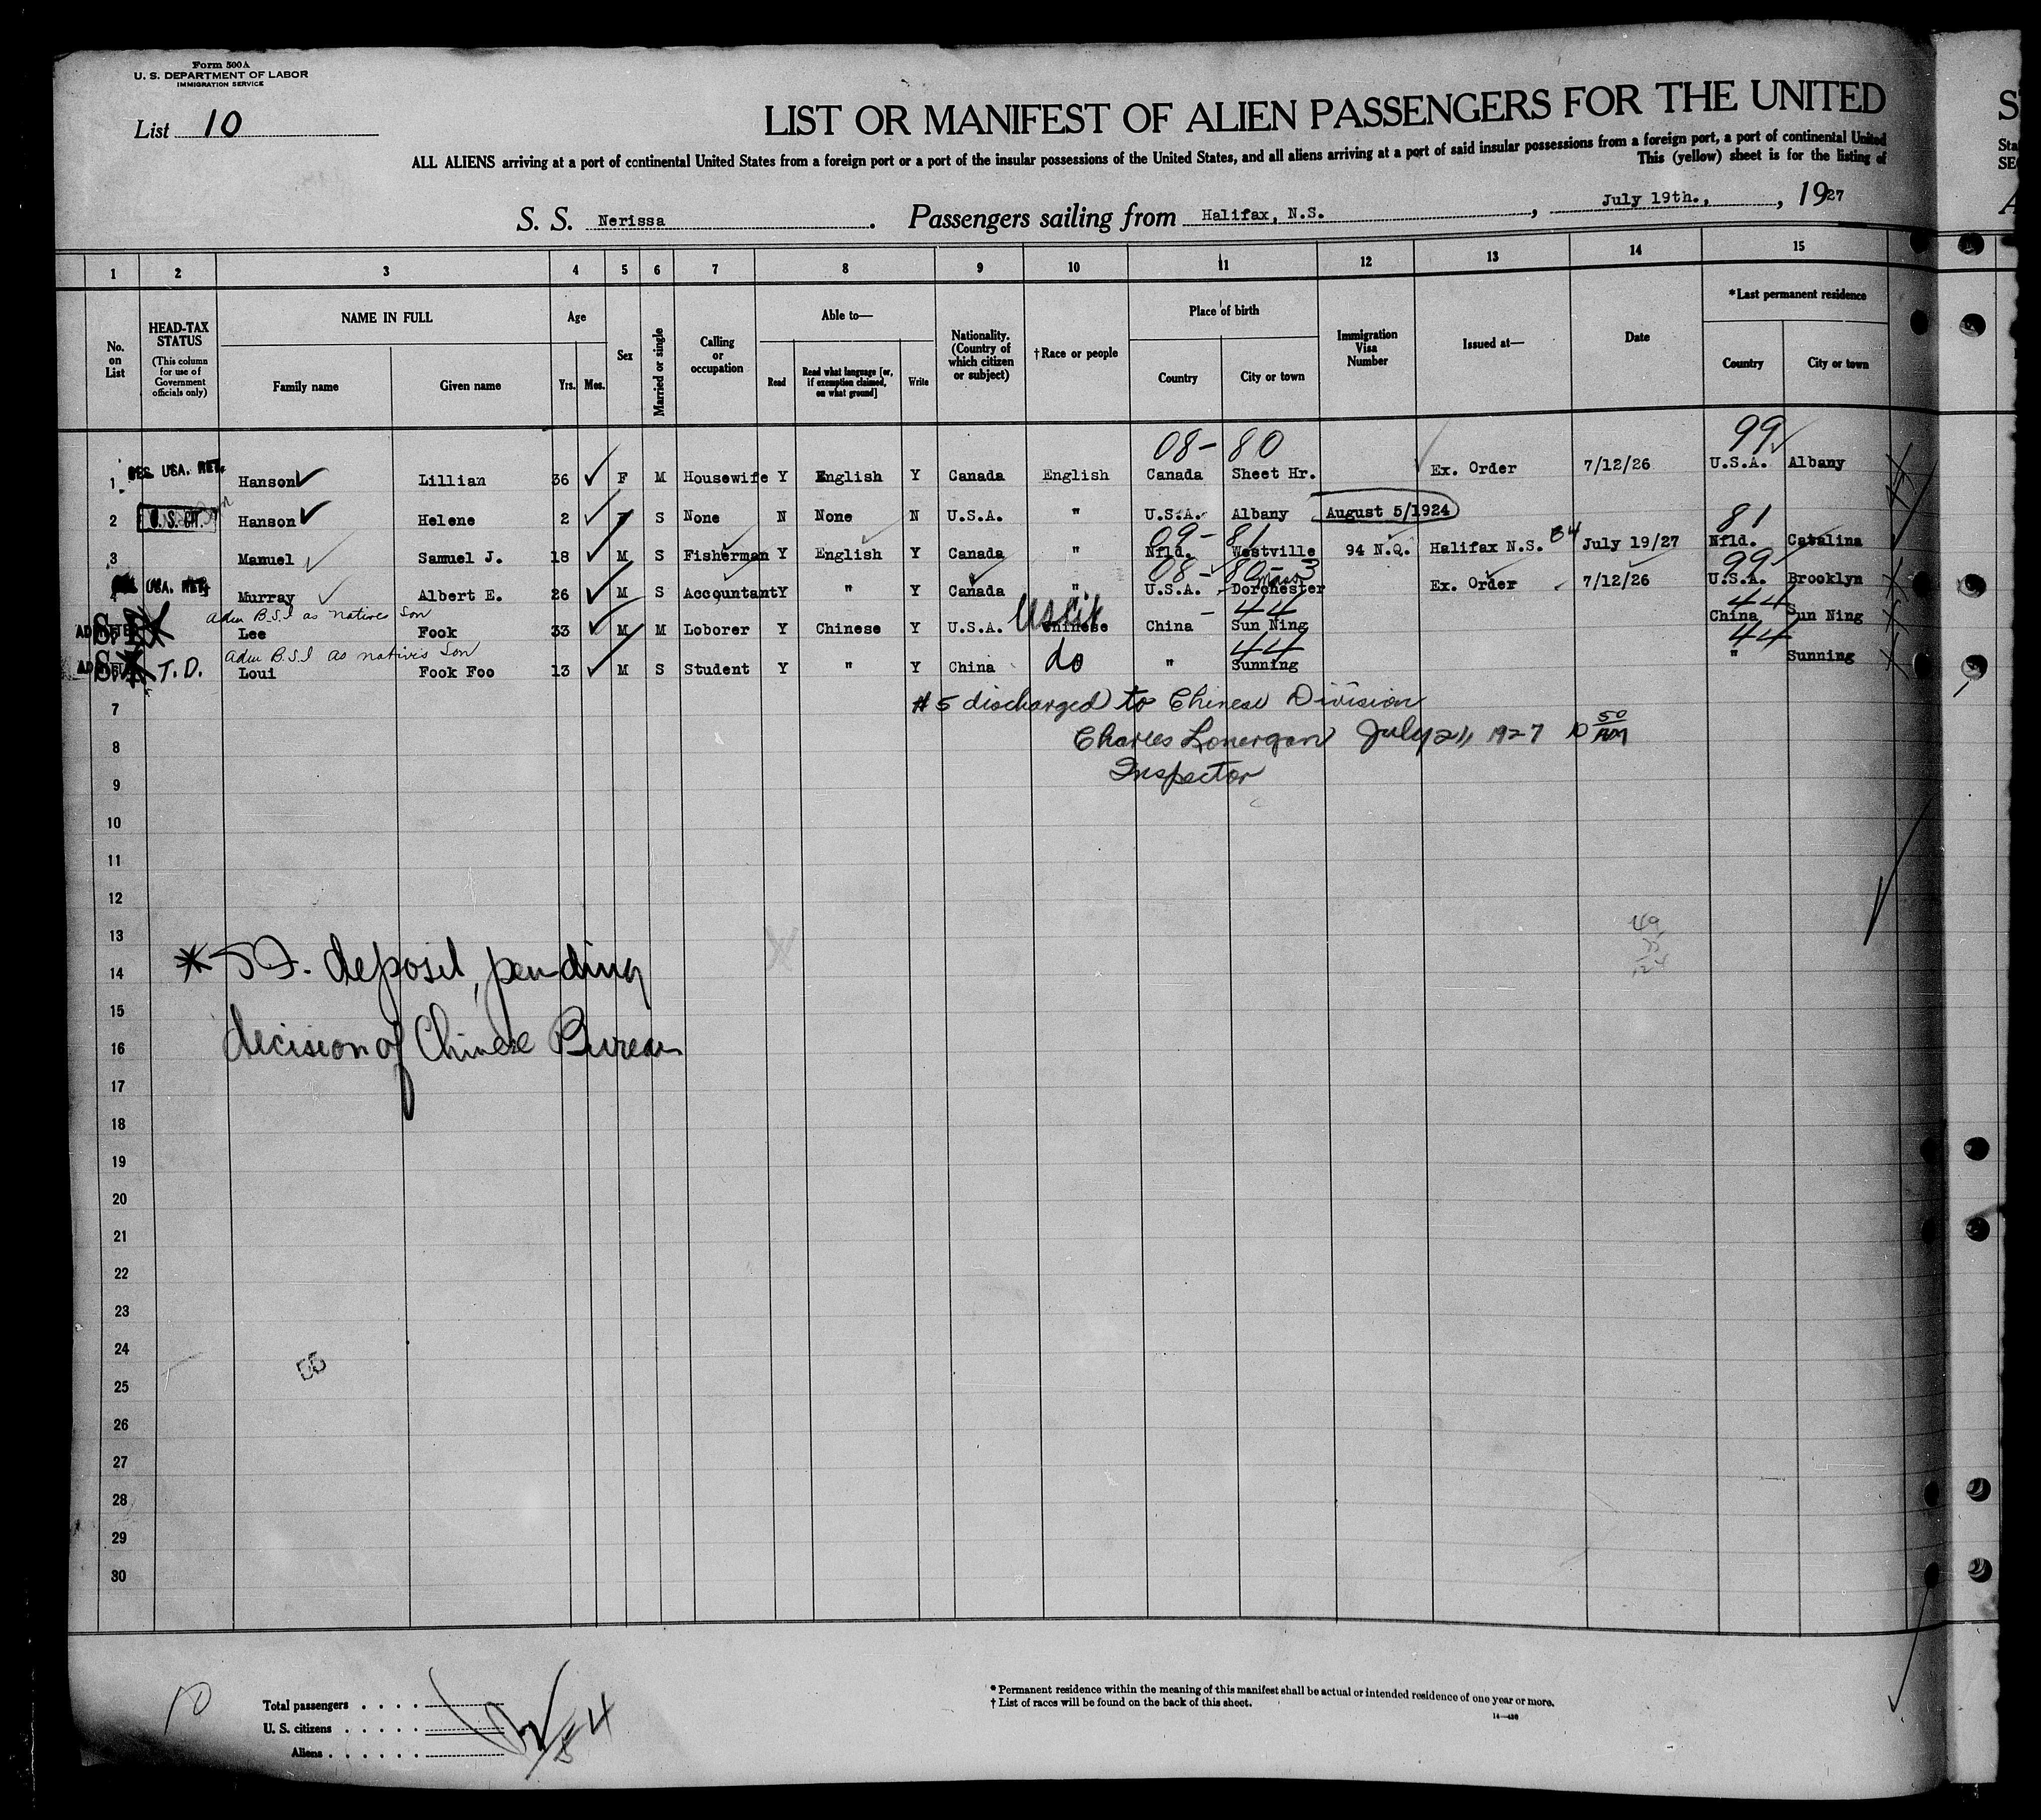 Form 500 A
U. S. DEPARTMENT OF LABOR
IMMIGRATION SERVICE
List 10
LIST OR MANIFEST OF ALIEN PASSENGERS FOR THE UNITED
ALL ALIENS arriving at a port of continental United States from a foreign port or a port of the insular possessions of the United States, and all aliens arriving at a port of said insular possessions from a foreign port, a port of continental United
This (yellow) sheet is for the listing of
S. S. Nerissa. Passengers sailing from Halifax, N.S., July 19th., , 1927
1 2 3 4 5 6 7 8 9 10 11 12 13 14 15
No. on List
HEAD-TAX STATUS
(This column for use of Government officials only)
NAME IN FULL
Family name Given name
Age
Yrs. Mos.
Sex
Married or single
Calling or occupation
Able to—
Read
Read what language [or, if exemption claimed, on what ground]
Write
Nationality. (Country of which citizen or subject)
†Race or people
Place of birth
Country City or town
Immigration Visa Number
Issued at—
Date
*Last permanent residence
Country City or town
08- 80 99
1 USA. RET. Hanson Lillian 36 F M Housewife Y English Y Canada English Canada Sheet Hr. Ex. Order 7/12/26 U.S.A. Albany
2 U.S. CIT. Hanson Helene 2 F S None N None N U.S.A. " U.S.A. Albany August 5/1924
09- 81 81
3 Manuel Samuel J. 18 M S Fisherman Y English Y Canada " Nfld. Westville 94 N.Q. Halifax N.S. 84 July 19/27 Nfld. Catalina
08- 80-3 99
4 USA. RET. Murray Albert E. 26 M S Accountant Y " Y Canada " U.S.A. Dorchester Mass Ex. Order 7/12/26 U.S.A. Brooklyn
Adm B.S.I as natives Son 44 44
ADMITTED Lee Fook 33 M M Loborer Y Chinese Y U.S.A. US Cit Chinese China Sun Ning China Sun Ning
Adm B.S.I as natives Son 44 44
T.D. Loui Fook Foo 13 M S Student Y " Y China do " Sunning " Sunning
7 # 5 discharged to Chinese Division
8 Charles Lonergan July 21, 1927 10 50 AM
9 Inspector
10
11
12
13
14 deposit, pending
15
16 decision of Chinese Bureau
17
18
19
20
21
22
23
24
25
26
27
28
29
30
10
Total passengers . . . .
U. S. citizens . . . . .
Aliens . . . . . .
*Permanent residence within the meaning of this manifest shall be actual or intended residence of one year or more.
†List of races will be found on the back of this sheet.